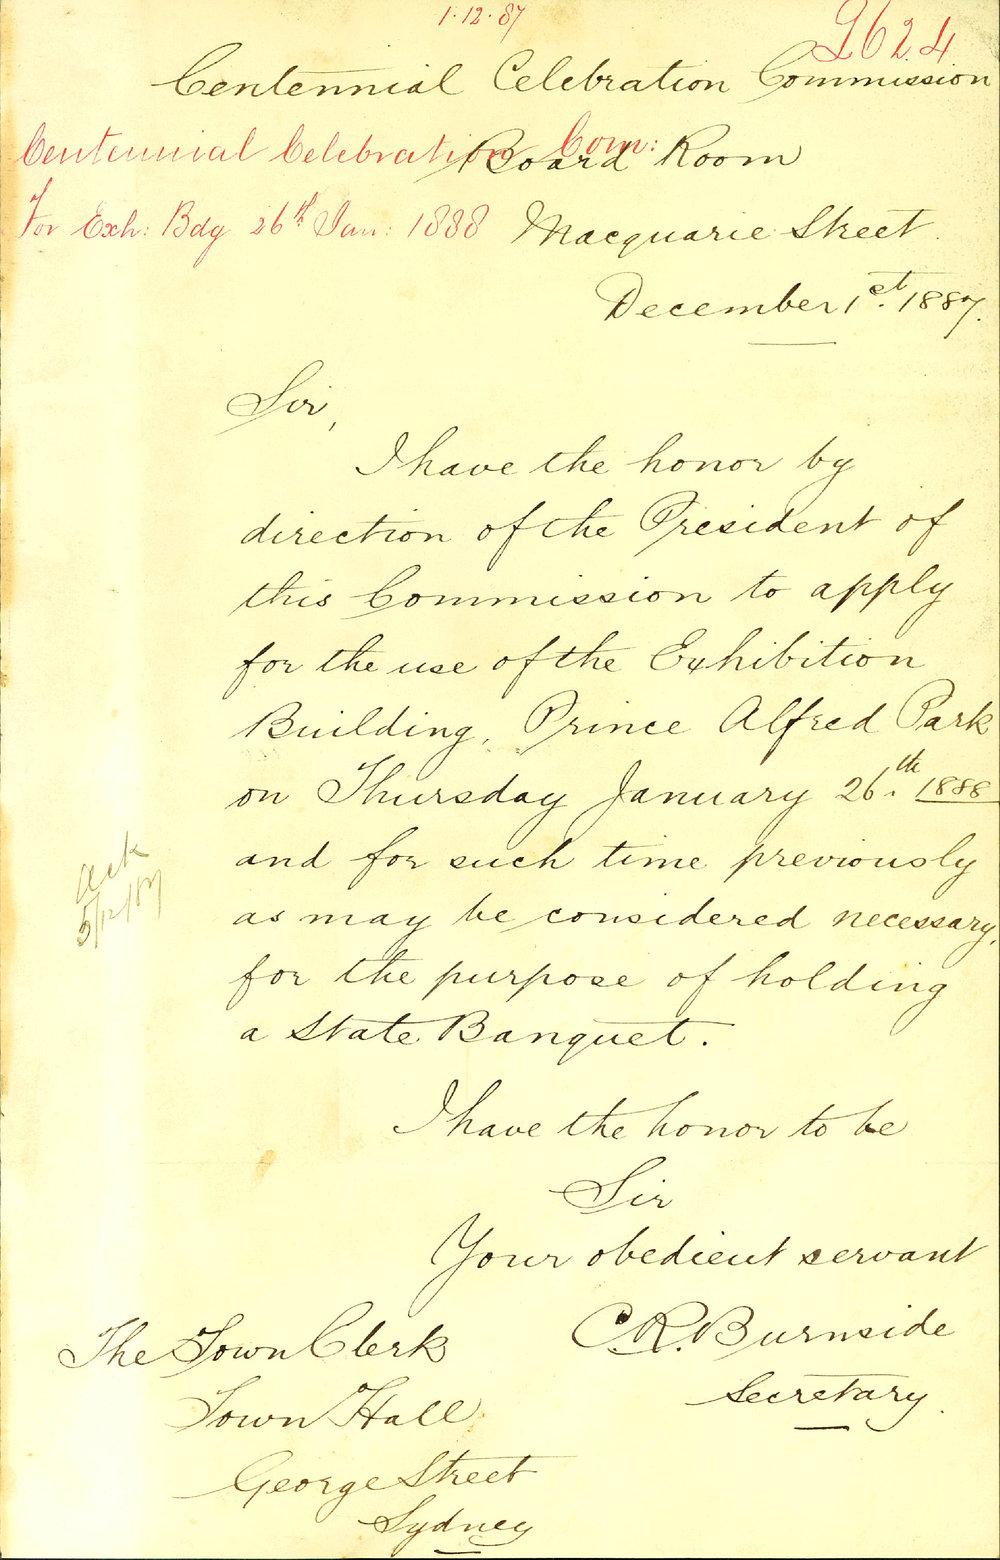 1·12·87
9624
Centennial Celebration Commission
Centennial Celebration Com:
Board Room
For Exh: Bdg 26th Jan: 1888
Macquarie Street
December 1st. 1887.
Sir,
I have the honor by
direction of the President of
this Commission to apply
for the use of the Exhibition
Building, Prince Alfred Park
on Thursday January 26th. 1888
and for such time previously
as may be considered necessary,
for the purpose of holding
a State Banquet.
Ack
5/12/87
I have the honor to be
Sir
Your obedient servant
C. R. Burnside
Secretary.
The Town Clerk
Town Hall
George Street
Sydney